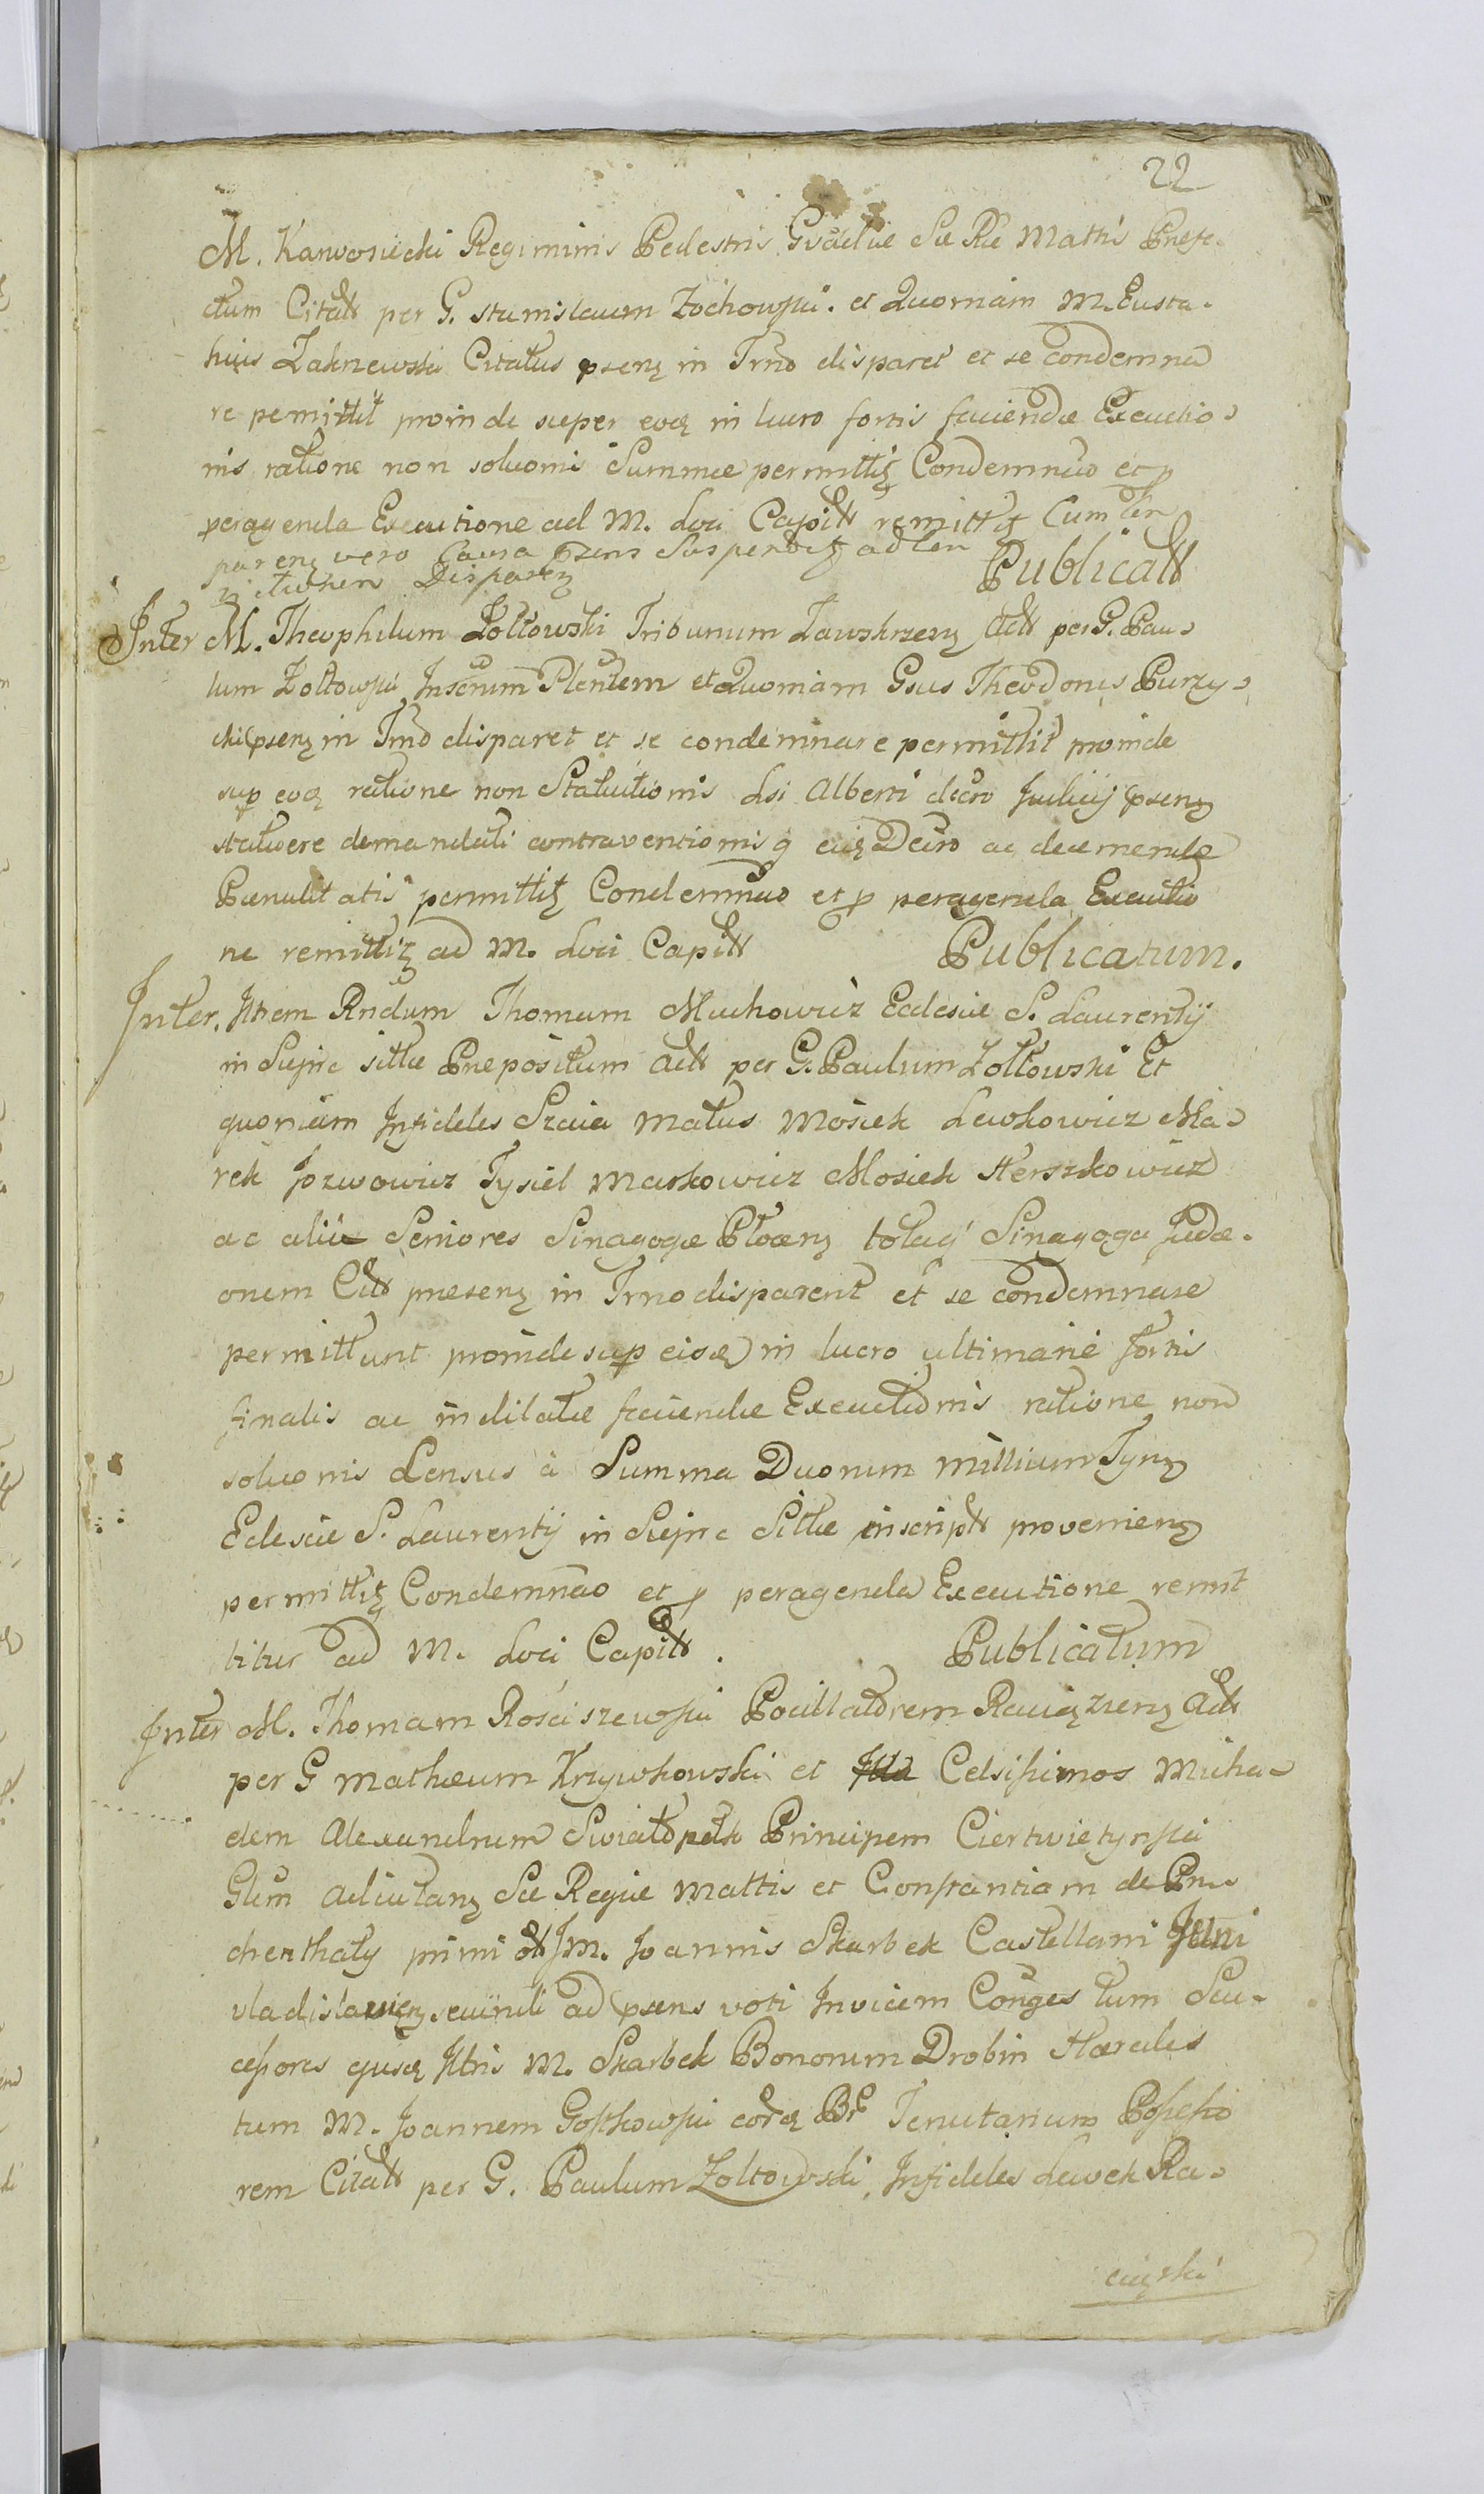 22
M. Karwosiecki Regiminis Pedestris Gvardiæ Sæ Ræ Mattis Præfe-
ctum Citatt per G. Stanislaum Żochowski. et Quoniam M. Eusta-
hius Zakrzewski Citatus psenz in Trno disparet et se condemna
re permittit proinde super eoq in lucro fortis faciendæ Executio-
nis ratione non soluonis Summæ permittitz Condemnao et p
peragenda Executione ad M. Loci Capitt remittitz Cum
parenz vero Causa psens Suspenditz ad
Disparenz Publicatt
Inter M. Theophilum Żołtowski Tribunum Zawskrzenz Actt per G. Pau-
lum Żołtowski Plentem et Quoniam Gsus Theodorus Burzy-
cki psenz in Trno disparet et se condemnare permittit proinde
sup eoq ratione non Statuitionis Lsi Alberti decro Judicij psenz
statuere demandati contraventionis q eiq Decro ac decernendæ
Pœnalitatis permittitz Condemnao et p peragenda Executio
ne remittitz ad M. Loci Capitt Publicatum.
Inter. Iltrem Rndum Thomam Muchowicz Ecclesiæ S. Laurentij
in Sierpc sittæ Præpositum Actt per G. Paulum Żołtowski Et
quoniam Infideles Szaia Matus Mosiek Lewkowicz Ma-
rek Jozwowicz Tysiel Markowicz Mosiek Herszkowicz
ac alii Seniores Sinagogæ Płocenz totaq Sinagoga Judæ-
orum Citt presenz in Trno disparent et se condemnare
permittunt proinde sup eisq in lucro ultimarie fortis
finalis ac indilatæ faciendæ Executionis ratione non
soluonis Census à Summa Duorum millium Tynz
Eclesiæ S. Laurentij in Sierpc Sittæ inscriptt provenienz
permittitz Condemnao et p peragenda Executione remit
titur ad M. Loci Capitt. Publicatum
Inter M. Thomam Rosciszewski Pocillatorem Raciązzenz Actt
per G Mathæum Krzywkowski et Celsissimos Micha-
elem Alexandrum Swiatopełk Principem Czertwietynski
Glem Adiutanz Sæ Regiæ Mattis et Constantiam de
primi ott JM. Joannis Skarbek Castellani
Vladislawienz secundi ad psens voti Invicem Conges tum Suc-
cessores ejusq Iltris M. Skarbek Bonorum Drobin Hæredes
tum M. Joannem Gostkowski eorq Br Tenutarium Possesso
rem Citatt per G. Paulum Żoltowski, Infideles Lewek Ra-
ciązski